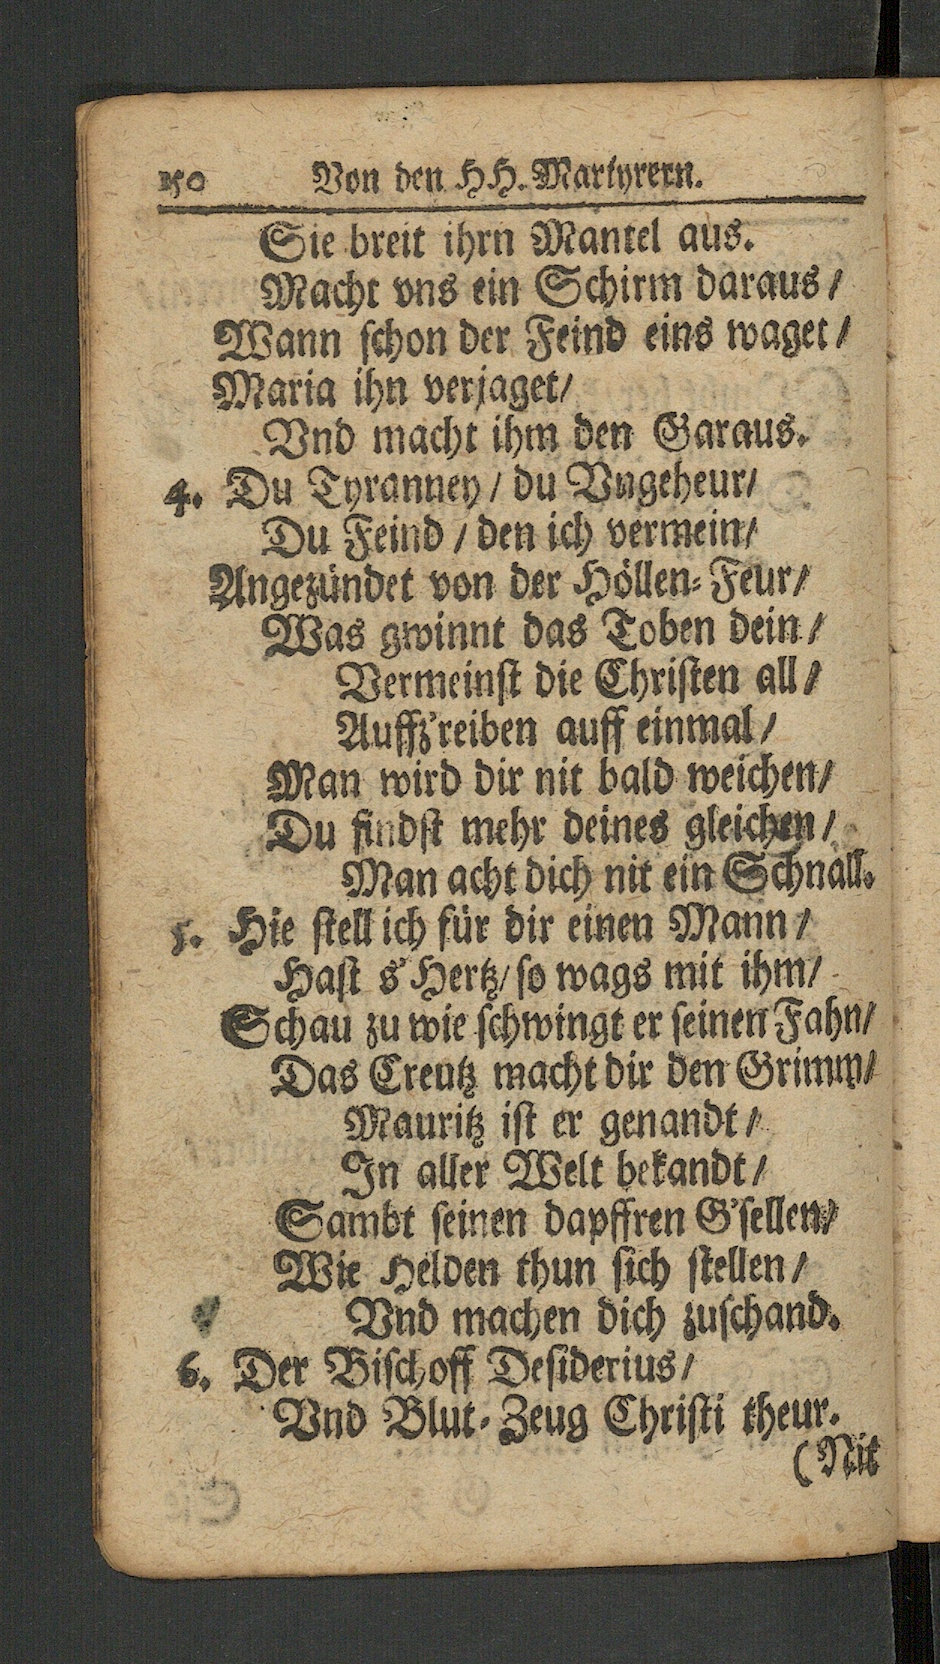 150 Von den HH. Martyrern.
Sie breit ihrn Mantel aus.
Macht vns ein Schirm daraus /
Wann schon der Feind eins waget /
Maria ihn verjaget /
Vnd macht ihm den Garaus.
4. Du Tyranney / du Vngeheur /
Du Feind / den ich vermein /
Angezündet von der Höllen-Feur /
Was gwinnt das Toben dein /
Vermeinst die Christen all /
Auffz'reiben auff einmal /
Man wird dir nit bald weichen /
Du findst mehr deines gleichen /
Man acht dich nit ein Schnall.
5. Hie stell ich für dir einen Mann /
Hast s'Hertz / so wags mit ihm /
Schau zu wie schwingt er seinen Fahn /
Das Creutz macht dir den Grimm /
Mauritz ist er genandt /
In aller Welt bekandt /
Sambt seinen dapffren G'sellen /
Wie Helden thun sich stellen /
Vnd machen dich zuschand.
6. Der Bischoff Desiderius /
Vnd Blut-Zeug Christi theur.
(Nit